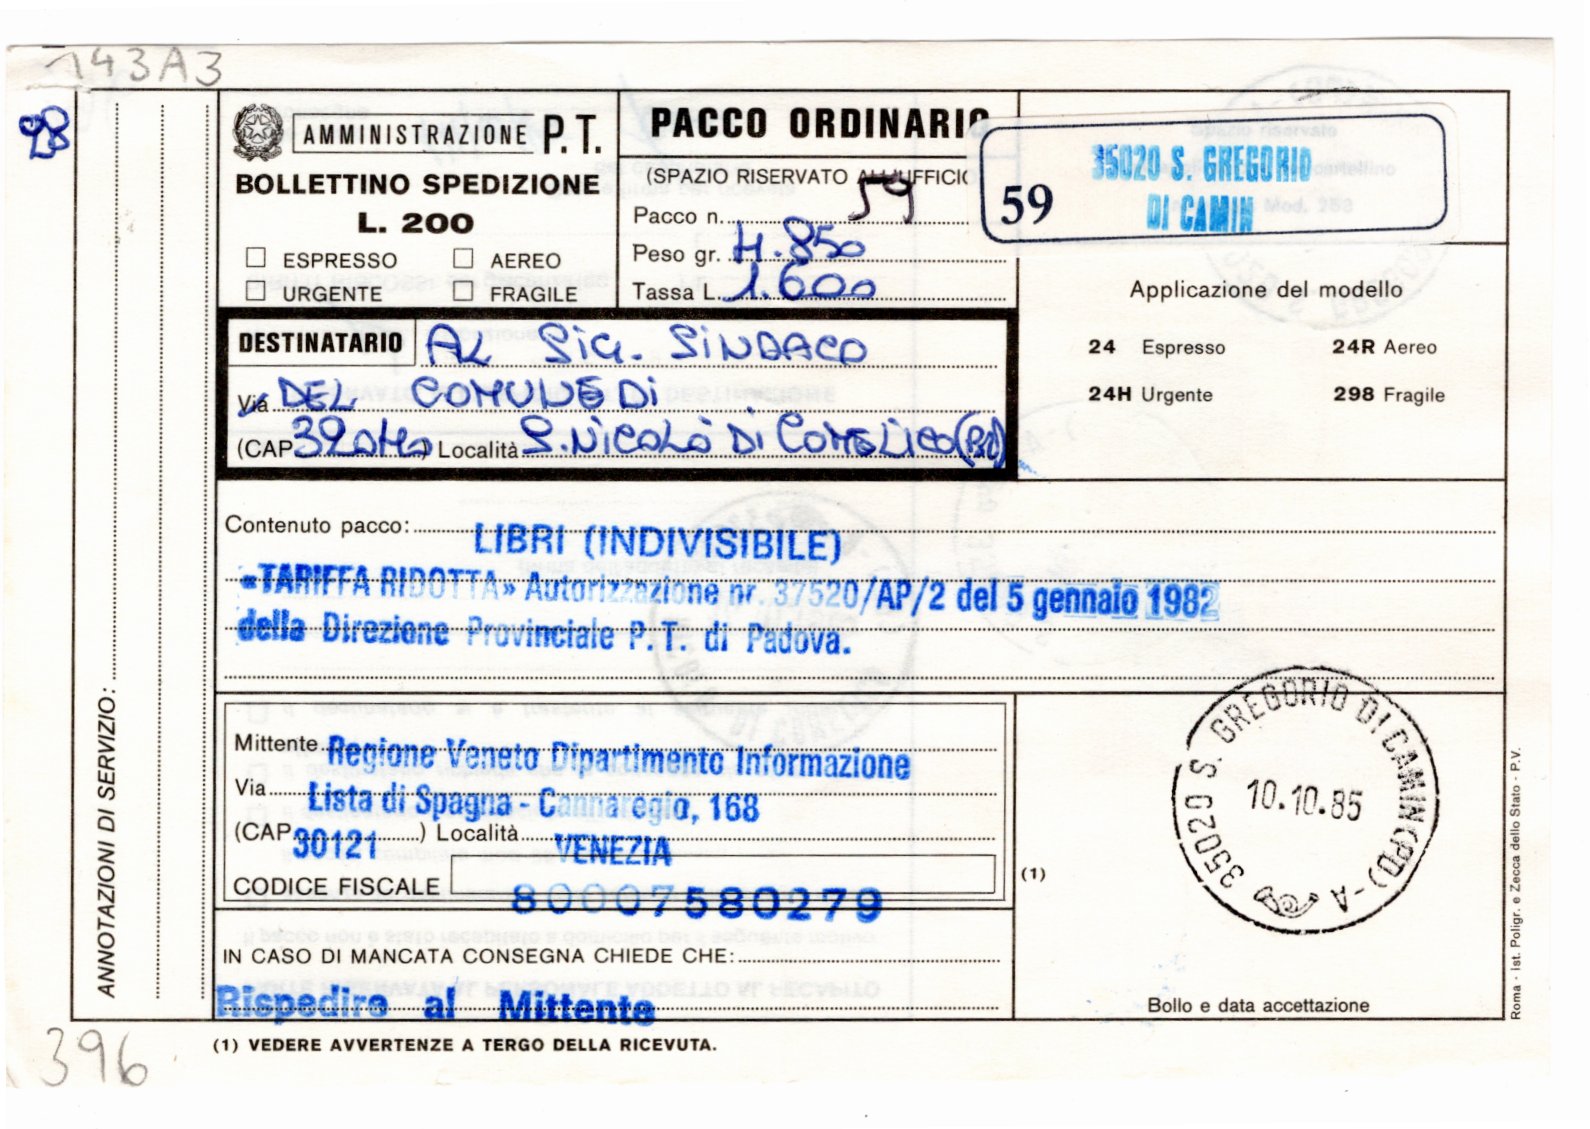 143A3
98
AMMINISTRAZIONE P.T.
BOLLETTINO SPEDIZIONE
L. 200
ESPRESSO AEREO
URGENTE FRAGILE
PACCO ORDINARIO
(SPAZIO RISERVATO ALL'UFFICIO
Pacco n. 59
Peso gr. 4.850
Tassa L. 1.600
59 35020 S. GREGORIO
DI CAMIN
Applicazione del modello
24 Espresso 24R Aereo
24H Urgente 298 Fragile
DESTINATARIO AL SIG. SINDACO
Via DEL COMUNE DI
(CAP 32040) Località S. NICOLÒ DI COMELICO (BL)
Contenuto pacco: LIBRI (INDIVISIBILE)
«TARIFFA RIDOTTA» Autorizzazione nr. 37520/AP/2 del 5 gennaio 1982
della Direzione Provinciale P.T. di Padova.
Mittente Regione Veneto Dipartimento Informazione
Via Lista di Spagna - Cannaregio, 168
(CAP 30121) Località VENEZIA
CODICE FISCALE 80007580279
IN CASO DI MANCATA CONSEGNA CHIEDE CHE:
Rispedire al Mittente
(1)
35020 S. GREGORIO DI CAMIN (PD) - A
10.10.85
Bollo e data accettazione
ANNOTAZIONI DI SERVIZIO:
Roma - Ist. Poligr. e Zecca dello Stato - P.V.
(1) VEDERE AVVERTENZE A TERGO DELLA RICEVUTA.
396